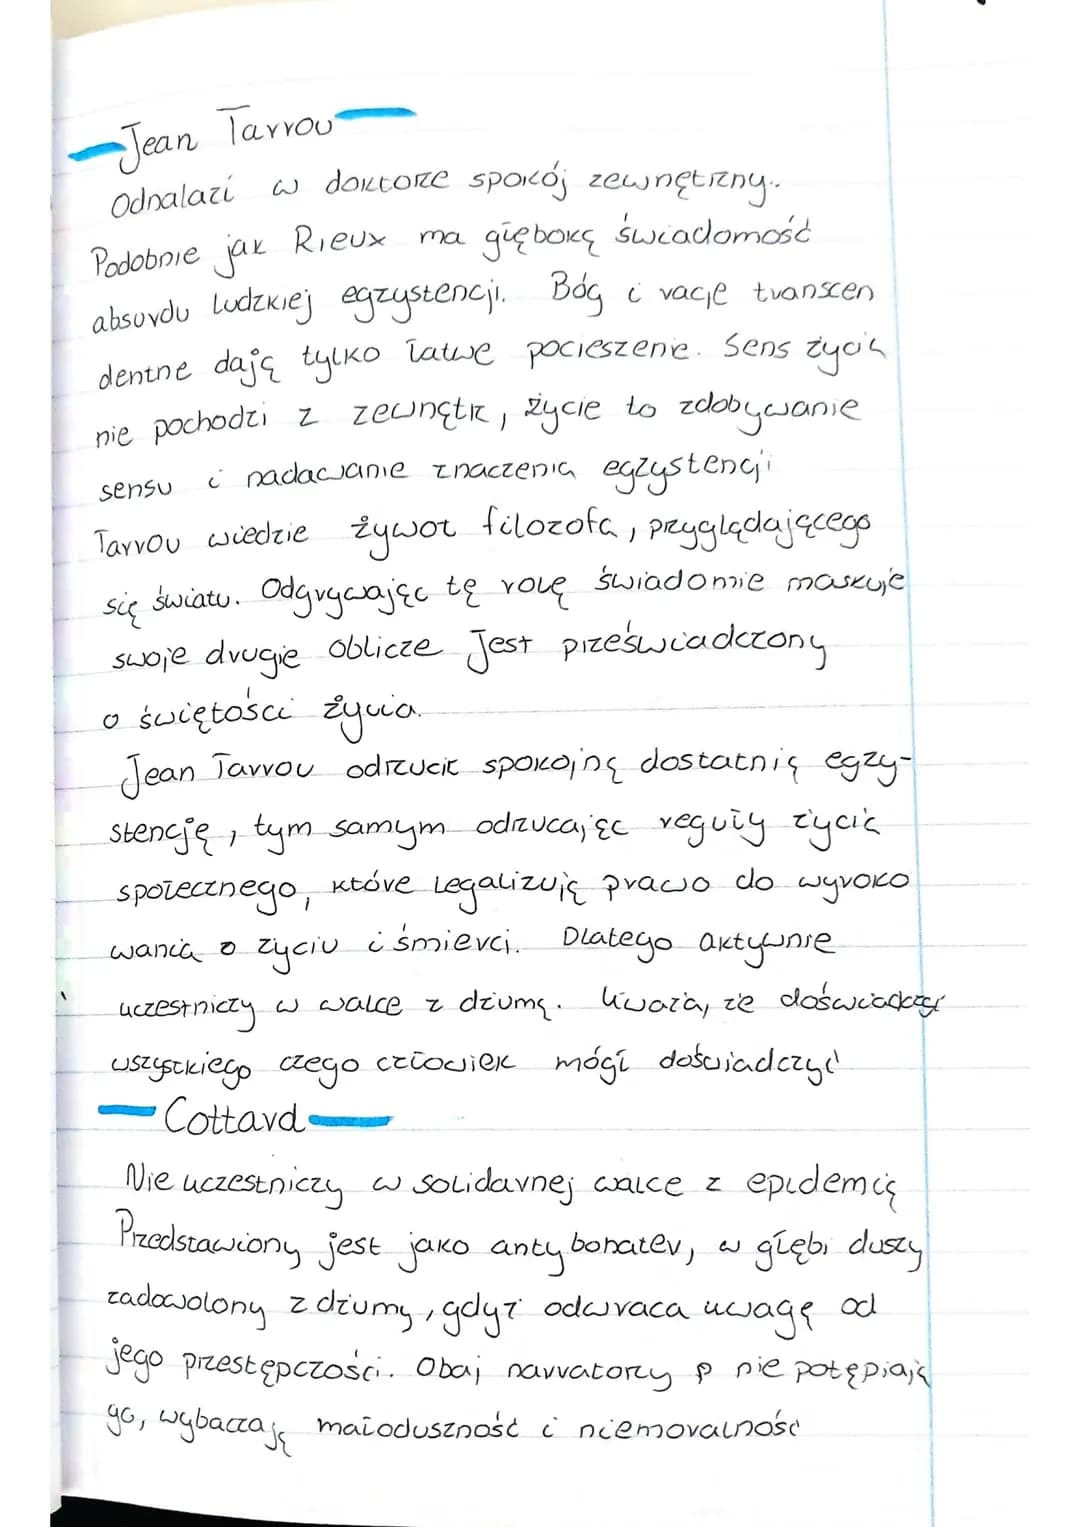 Jean Tarrou
Odnalazł w doktorze spokój zewnętrzny.
Podobnie jak Rieux ma głęboką świadomość
absurdu ludzkiej egzystencji. Bóg i racje transcen
dentne dają tylko łatwe pocieszenie. Sens życia
nie pochodzi z zewnątrz, życie to zdobywanie
sensu i nadawanie znaczenia egzystencji
Tarrou wiedzie żywot filozofa, przyglądającego
się światu. Odgrywając tę rolę świadomie maskuje
swoje drugie oblicze Jest przeświadczony
o świętości życia.
Jean Tarrou odrzucił spokojną dostatnią egzy-
stencję, tym samym odrzucając reguły życia
społecznego, które legalizują prawo do wyroko
wania o życiu i śmierci. Dlatego aktywnie
uczestniczy w walce z dżumą. Uważa, że doświadczył
wszystkiego czego człowiek mógł doświadczyć
Cottard
Nie uczestniczy w solidarnej walce z epidemią
Przedstawiony jest jako antybohater, w głębi duszy
zadowolony z dżumy, gdyż odwraca uwagę od
jego przestępczości. Obaj narratorzy p nie potępiają
go, wybaczają małoduszność i niemoralność